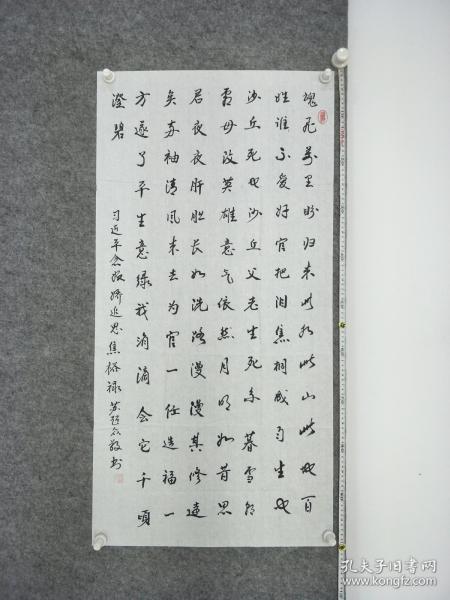 魂飞萬里盼归来此水此山此地百
姓谁不爱好官把泪焦桐成雨生也
沙丘死也沙丘父老生死系暮雪朝
霜毋改英雄意气依然月明如昔思
君夜夜肝胆长如洗路漫漫其修远
矣两袖清风来去为官一任造福一
方遂了平生意绿我涓滴会它千顷
澄碧
习近平念奴娇追思焦裕禄 苏
敬书
孔夫子旧书网
www.kongfz.com